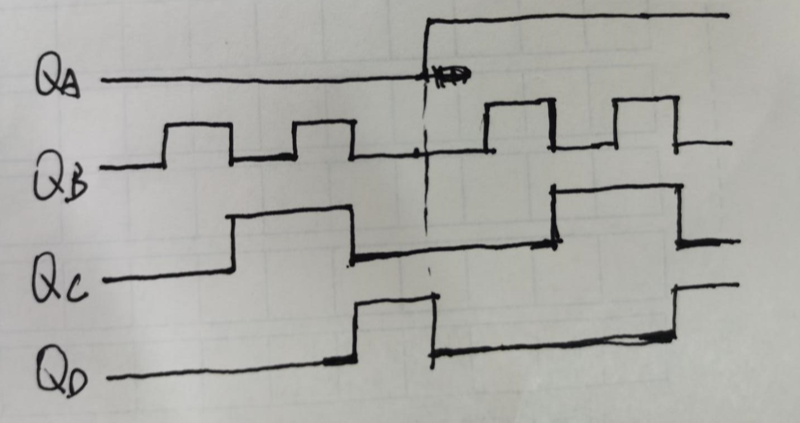 QA
QB
QC
QD